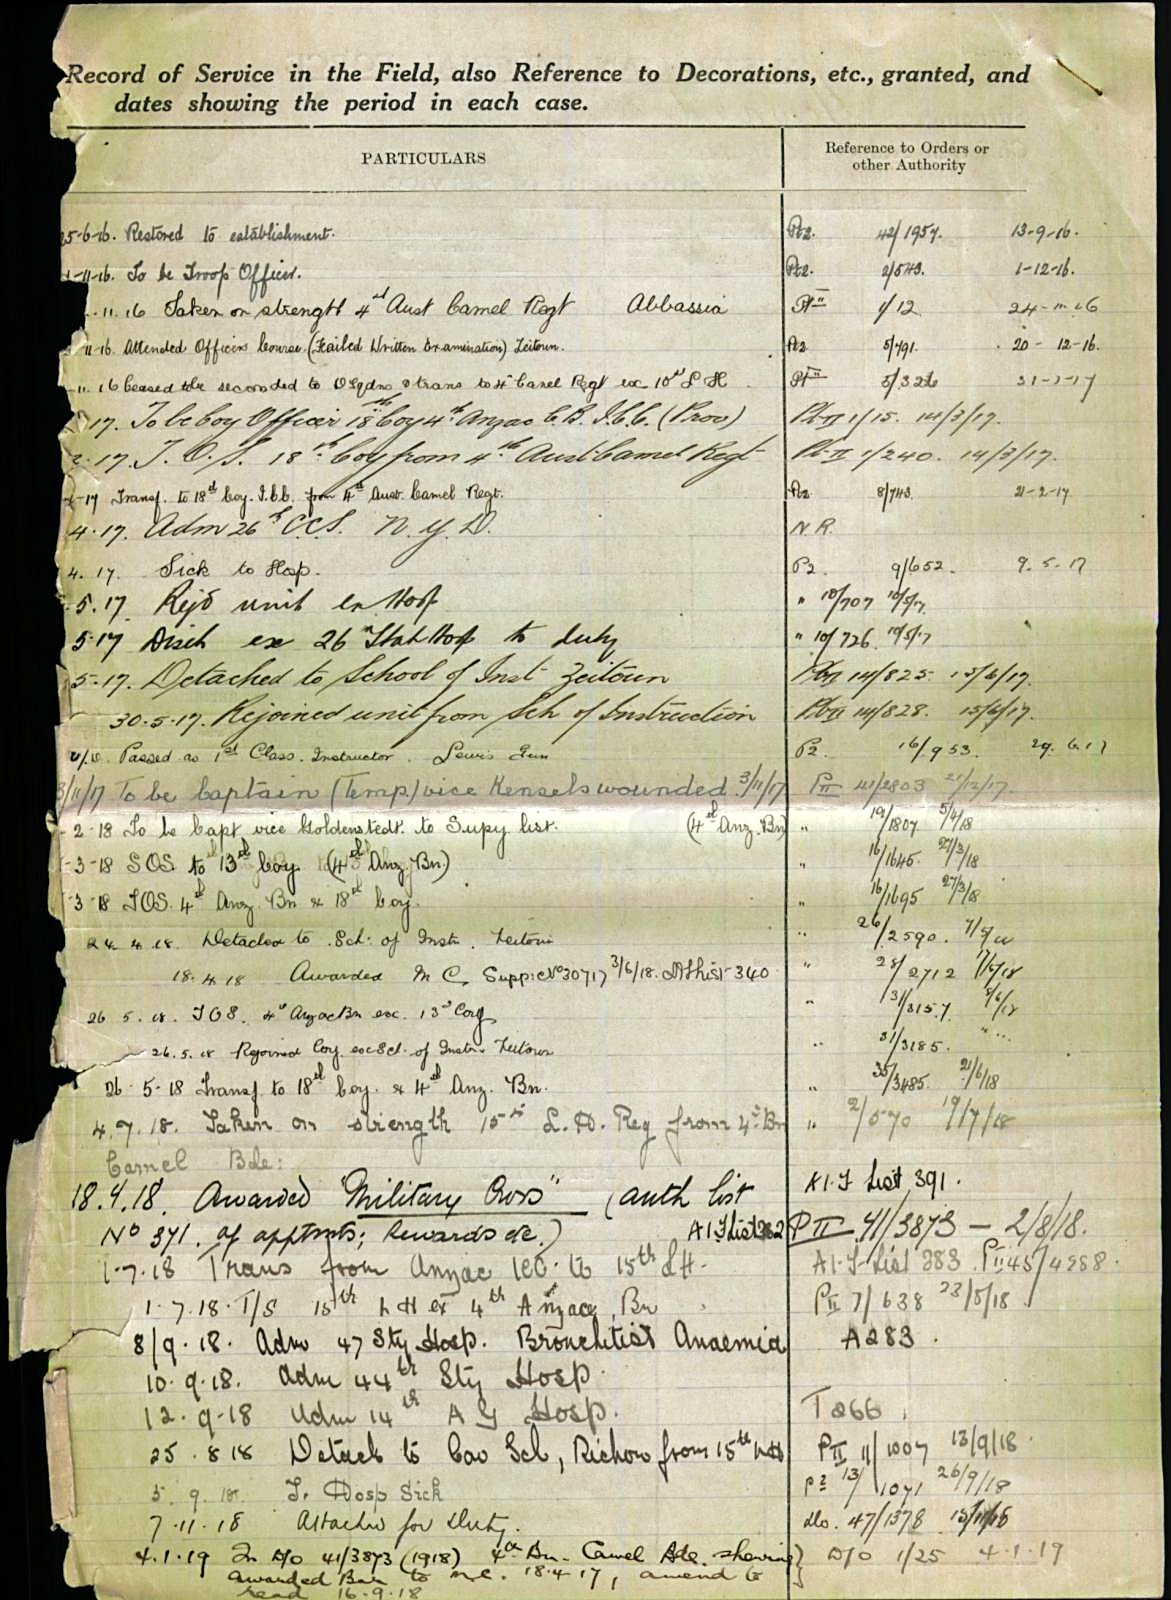 Record of Service in the Field, also Reference to Decorations, etc., granted, and
dates showing the period in each case.
PARTICULARS
Reference to Orders or
other Authority
5-6-16. Restored to establishment. Pt2. 42/1957. 13-9-16.
-11-16. To be Troop Officer. Pt2. 2/543. 1-12-16.
.11.16 Taken on strength 4th Aust Camel Regt Abbassia Pt II 1/12
11-16. Attended Officers Course. (Failed Written Examination) Zeitoun. Pt2 5/791. 20-12-16.
11.16 Ceased to be seconded to & trans to 4th Camel Regt ex 10th L H Pt II 5/326
17. To be Coy Officer 18th Coy 4th Anzac C.B. I.C.C. (Prov) Pt II 1/15. 14/3/17.
17. T.O.S. 18th Coy from 4th Aust Camel Regt Pt II 1/240. 14/3/17.
-17 Transf. to 18th Coy. I.C.C. from 4th Aust. Camel Regt. Pt2 8/743. 21-2-17
4.17. Adm 26th C.C.S. N.Y.D. N.R.
4.17. Sick to Hosp. P2. 9/652. 9.5.17
5.17 Rejd unit ex Hosp " 10/707
5.17 Disch ex 26 Stat Hosp to duty " 10/726.
5-17. Detached to School of Inst Zeitoun Pt II 14/825. 15/6/17.
30.5.17. Rejoined unit from Sch of Instruction Pt II 14/828. 15/6/17.
Passed as 1st Class. Instructor. Lewis Gun P2. 16/953. 29.6.17
3/11/17 To be Captain (Temp) vice Kensels wounded. 3/11/17 P II 41/2803 21/12/17.
-2-18 To be Capt vice Goldenstedt. to Supy list. (4th Anz. Bn) " 19/1807 5/4/18
-3-18 SOS. to 13th Coy (4th Anz. Bn.) " 16/1645. 27/3/18
-3-18 TOS. 4th Anz. Bn & 18th Coy. " 16/1695 27/3/18
24.4.18. Detached to Sch: of Instr. Zeitoun " 26/2590.
18.4.18 Awarded M C, Supp: No 30717 3/6/18. 340 " 28/2712
26.5.18. TOS. 4th Anzac Bn ex. 13th Coy " 31/3157. 5/6/18
26.5.18 Rejoined Coy. ex Sch. of Instr. Zeitoun " 31/3185. "
26-5-18 Transf to 18th Coy. & 4th Anz. Bn. " 35/3485. 21/6/18
4.7.18. Taken on strength 15th L.H. Reg from 4th Bn " 2/570 19/7/18
Camel Bde:
18.4.18. Awarded "Military Cross" (auth list A.I.F List 391.
No 391. of apptmts; Rewards &c.) A.I.F List 382 P II 41/3873 - 2/8/18.
1-7.18 Trans from Anzac ICC. to 15th LH. A.I.F List 383. P II 45/4288.
1.7.18. T/S 15th LH ex 4th Anzac Bn P II 7/638 23/8/18
8/9.18. Adm 47 Sty Hosp. Bronchitis & Anaemia A283.
10.9.18. Adm 44th Sty Hosp.
12.9-18 Adm 14th A G Hosp. T266.
25.8 18 Detach to Cav Sch, Richon from 15th LH P II 11/1007 13/9/18
5.9.18. To Hosp Sick P2 13/1071 26/9/18
7.11.18 Attached for Duty. do. 47/1378
4.1.19 In D/O 41/3873 (1918) 4th Bn. Camel Bde. showing } D/O 1/25 4.1.19
awarded Bar to M.C. 18.4.17, amend to
read 16.9.18